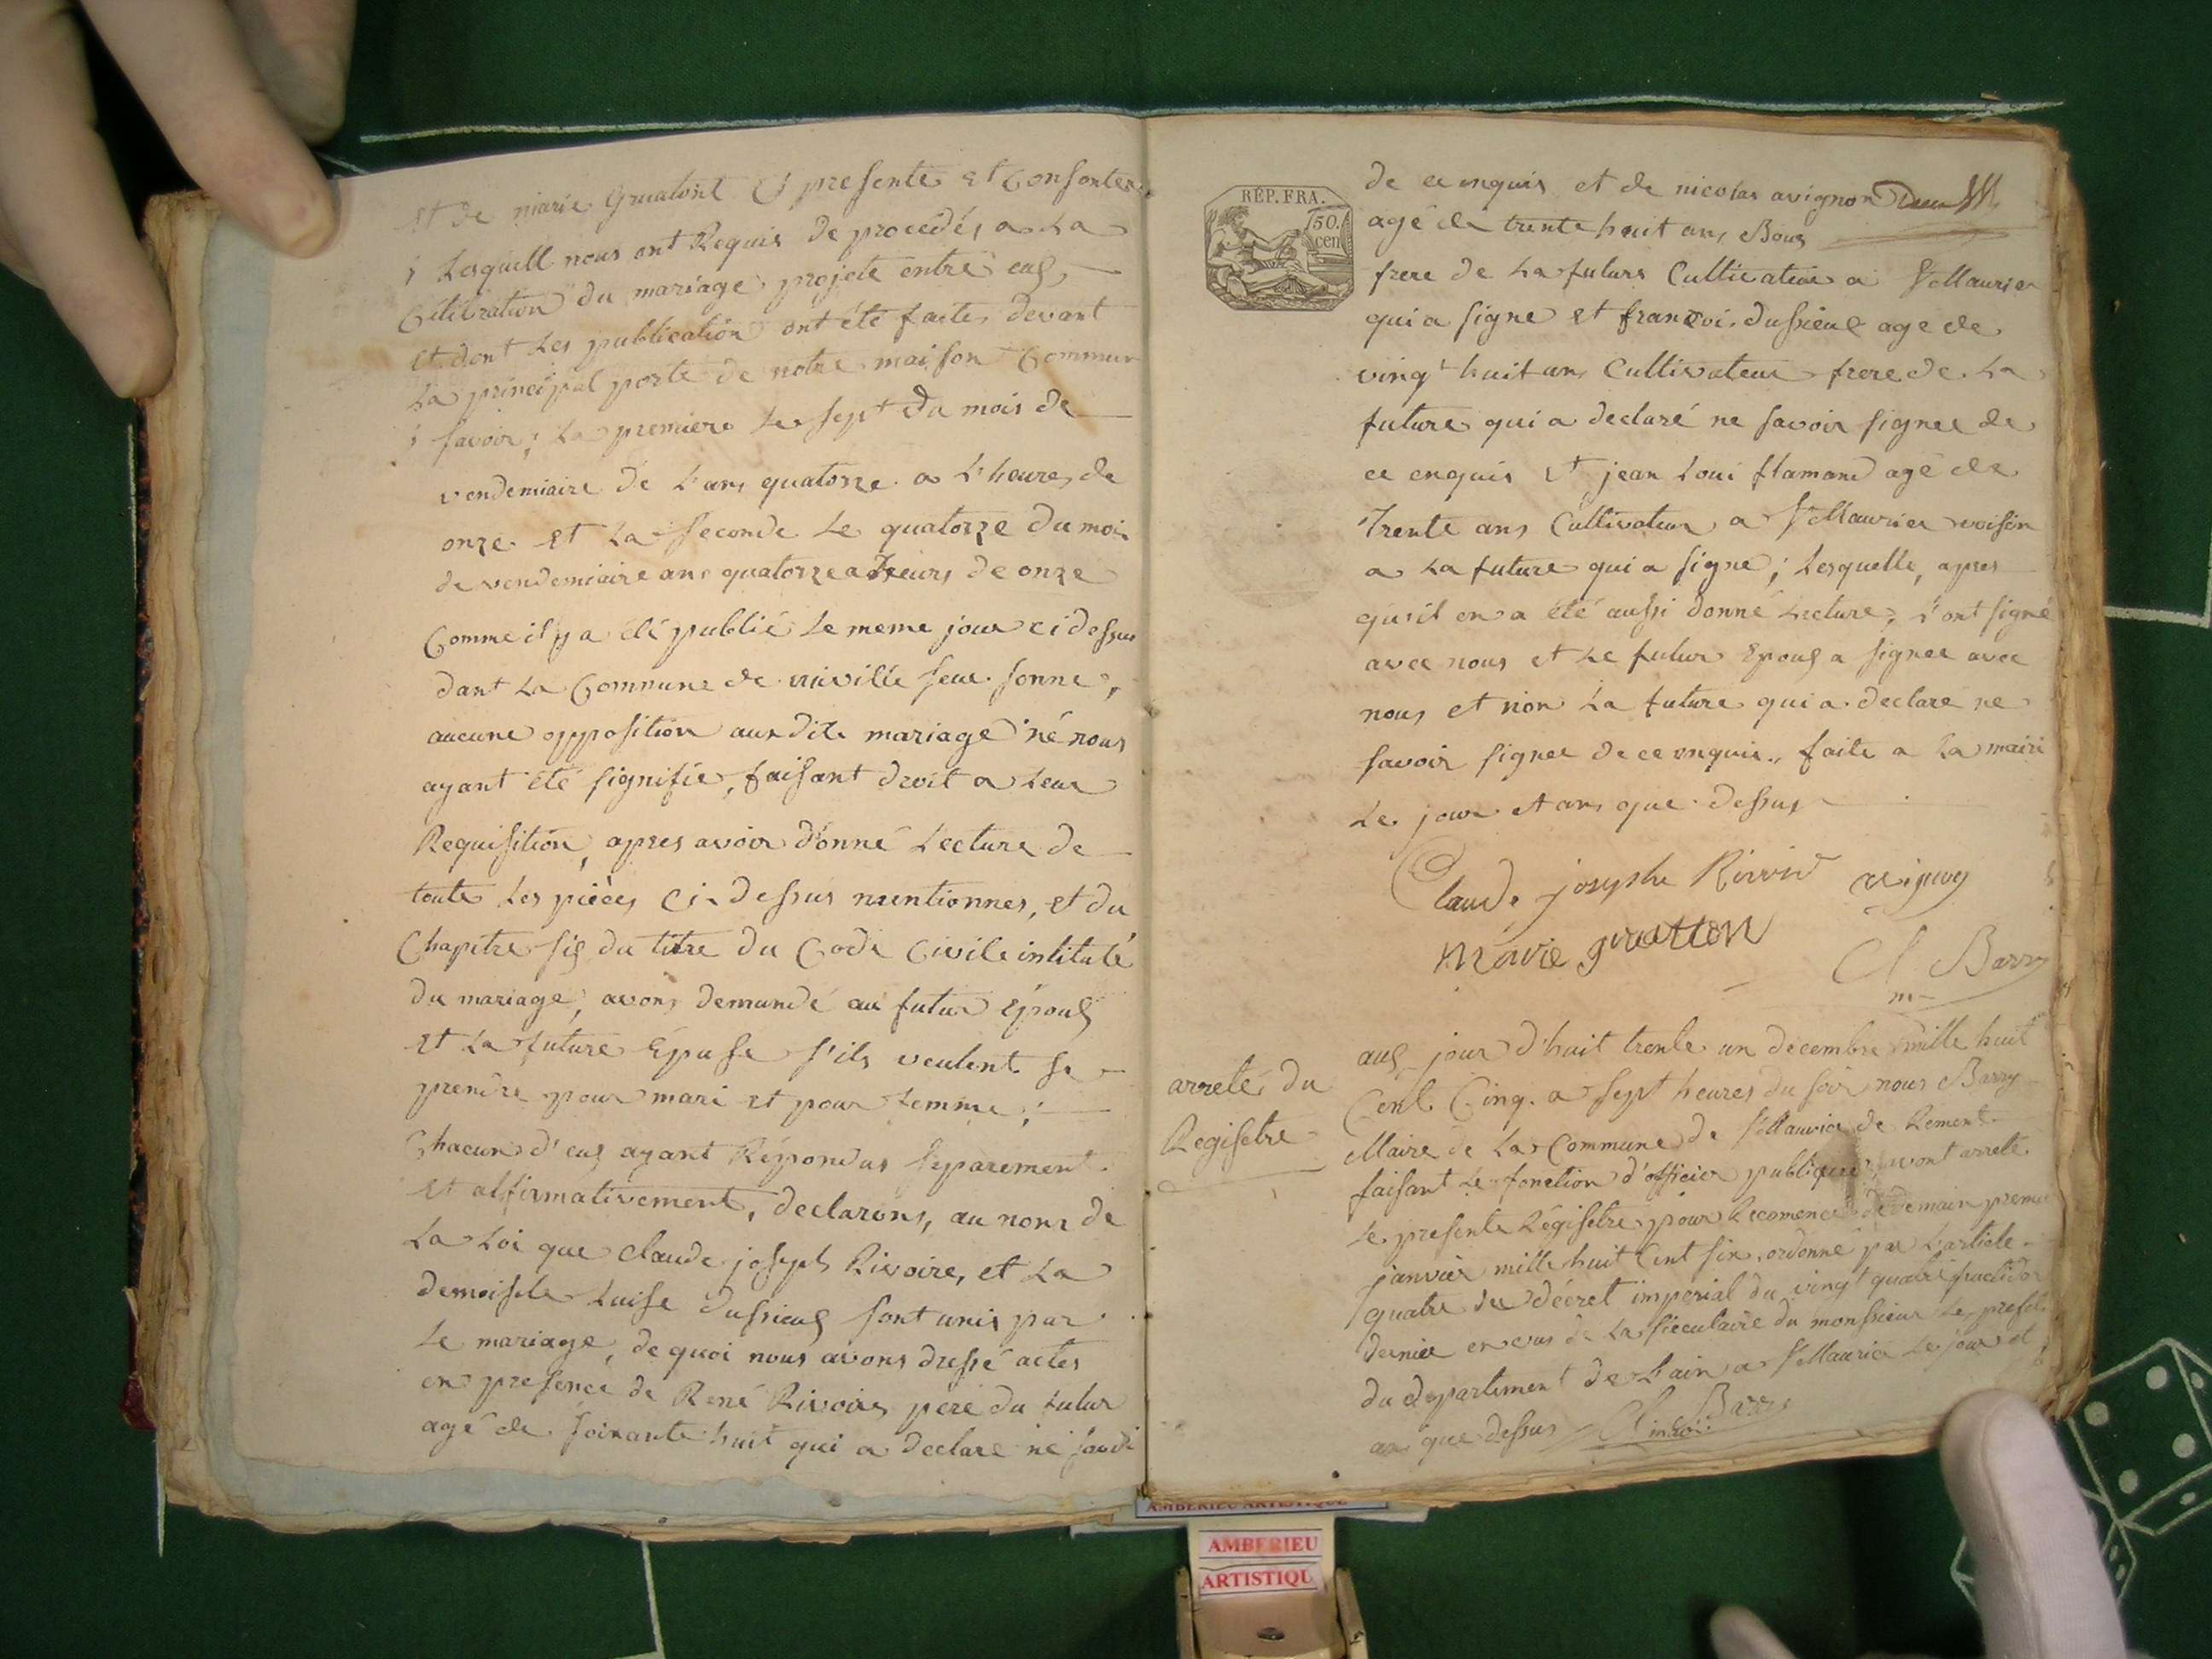 Et de marie Gruatont Ci presente et Consente
Lesquell nous ont Requis de procédés a La
Célébration du mariage projeté entre eux
Et dont Les publication ont été faites devant
La principal porte de notre maison Commun
Savoir; La premiere Le sept du mois de
vendemiaire de L'ans quatorze a L'heure de
onze Et La seconde Le quatorze du moi
de vendemiaire ans quatorze a heurs de onze
Comme il y a été publié Le meme jour ci dessus
dant La Commune de
aucune opposition aux dit mariage né nous
ayant été signifie, faisant droit a Leur
Requisition, apres avoir donné Lecture de
toute Les pièces Ci-dessus mentionnes, et du
Chapitre six du titre du Code Civile intitulé
Du mariage, avons demandé au futur Epoux
et La future Epuse s'ils veulent se
prendre pour mari et pour femme;
Chacun d'eux ayant Répondus Separement
et affirmativement, declarons, au nom de
La Loi que Claude joseph Rivoire, et La
demoiselle Luise dussieux sont unis par
Le mariage, de quoi nous avons dressé actes
en presence de René Rivoire pere du futur
agé de soixante huit qui a declare ne savoi
RÉP. FRA.
50.
cen
de ce enquis et de nicolas avignon
agé de trente huit ans Bous
frere de La future Cultivateur a St Maurice
qui a signe et francois dussieux age de
vingt huit ans Cultivateur frere de La
future qui a declaré ne savoir signer de
ce enquis et jean Loui flamand agé de
Trente ans Cultivateur a St Maurice voisin
a La future qui a signe; Lesquelle, apres
qu'il en a été aussi donné Lecture, l'ont signé
avec nous et Le futur Epoux a signer avec
nous et non La future qui a declare ne
savoir signer de ce enquis., faite a La mairi
Le jour et ans que dessus
Claude josephe Rivoir
marie gruatton
Cl Barry
m
arreté du
Registre
aux jour d'huit trente un decembre mille huit
Cent Cinq. a sept heures du soir nous Barry
Maire de La Commune de St Maurice de Rement
faisant Le fonction d'officier publique, avont arreté
Le presente Régistre pour Recomencer de demain premie
janvier mille huit Cent six, ordonné par L'article
quatre du décret imperial du vingt quatre fructidor
dernier en vus de La du monssieur Le prefet
du departement de L'ain a St Maurice Le jour et
an que dessus Cl Barry
AMBERIEU ARTISTIQUE
AMBERIEU
ARTISTIQU